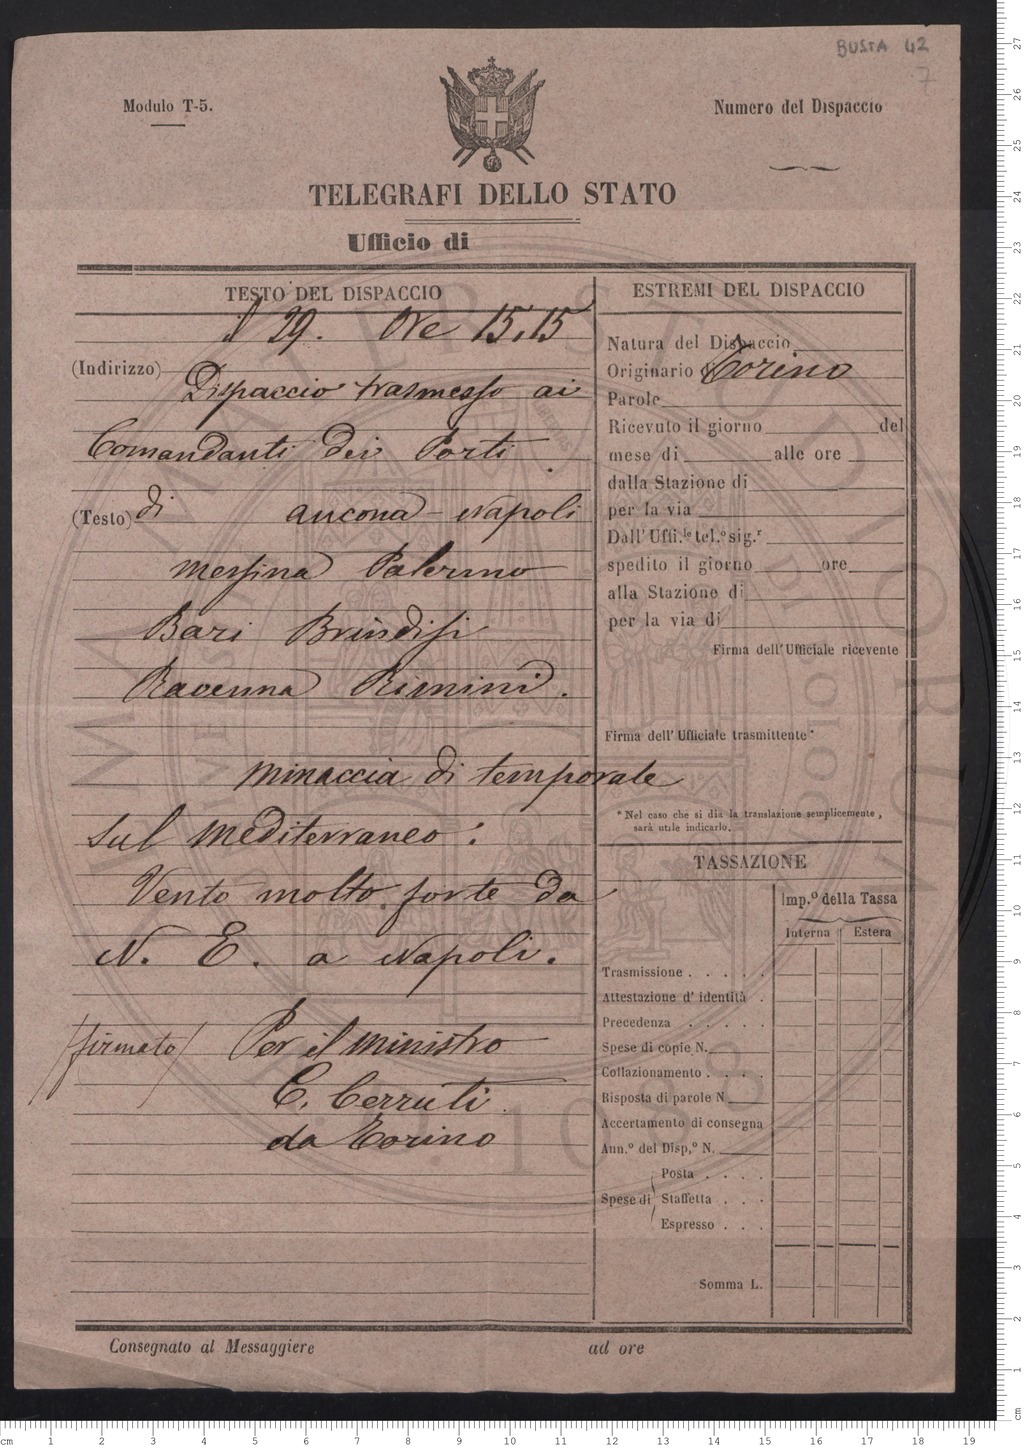 BUSTA 42
7
Modulo T-5.
Numero del Dispaccio
TELEGRAFI DELLO STATO
Ufficio di
TESTO DEL DISPACCIO
Il 29. Ore 15,15
(Indirizzo)
Dispaccio trasmesso ai
Comandanti dei Porti
(Testo) di Ancona - Napoli
Messina Palermo
Bari Brindisi
Ravenna Rimini.
Minaccia di temporale
sul Mediterraneo:
Vento molto forte da
N. E. a Napoli.
/firmato/ Per il Ministro
C. Cerruti
da Torino
ESTREMI DEL DISPACCIO
Natura del Dispaccio
Originario di Torino
Parole
Ricevuto il giorno del
mese di alle ore
dalla Stazione di
per la via
Dall'Uffi.le tel.o sig.r
spedito il giorno ore
alla Stazione di
per la via di
Firma dell'Ufficiale ricevente
Firma dell'Ufficiale trasmittente*
* Nel caso che si dia la translazione semplicemente,
sarà utile indicarlo.
TASSAZIONE
Imp.o della Tassa
Interna Estera
Trasmissione . . . . .
Attestazione d'identità .
Precedenza . . . . .
Spese di copie N.
Collazionamento . . . .
Risposta di parole N
Accertamento di consegna
Ann.o del Disp,o N.
Posta . . . .
Spese di Staffetta . . .
Espresso . . .
Somma L.
Consegnato al Messaggiere
ad ore